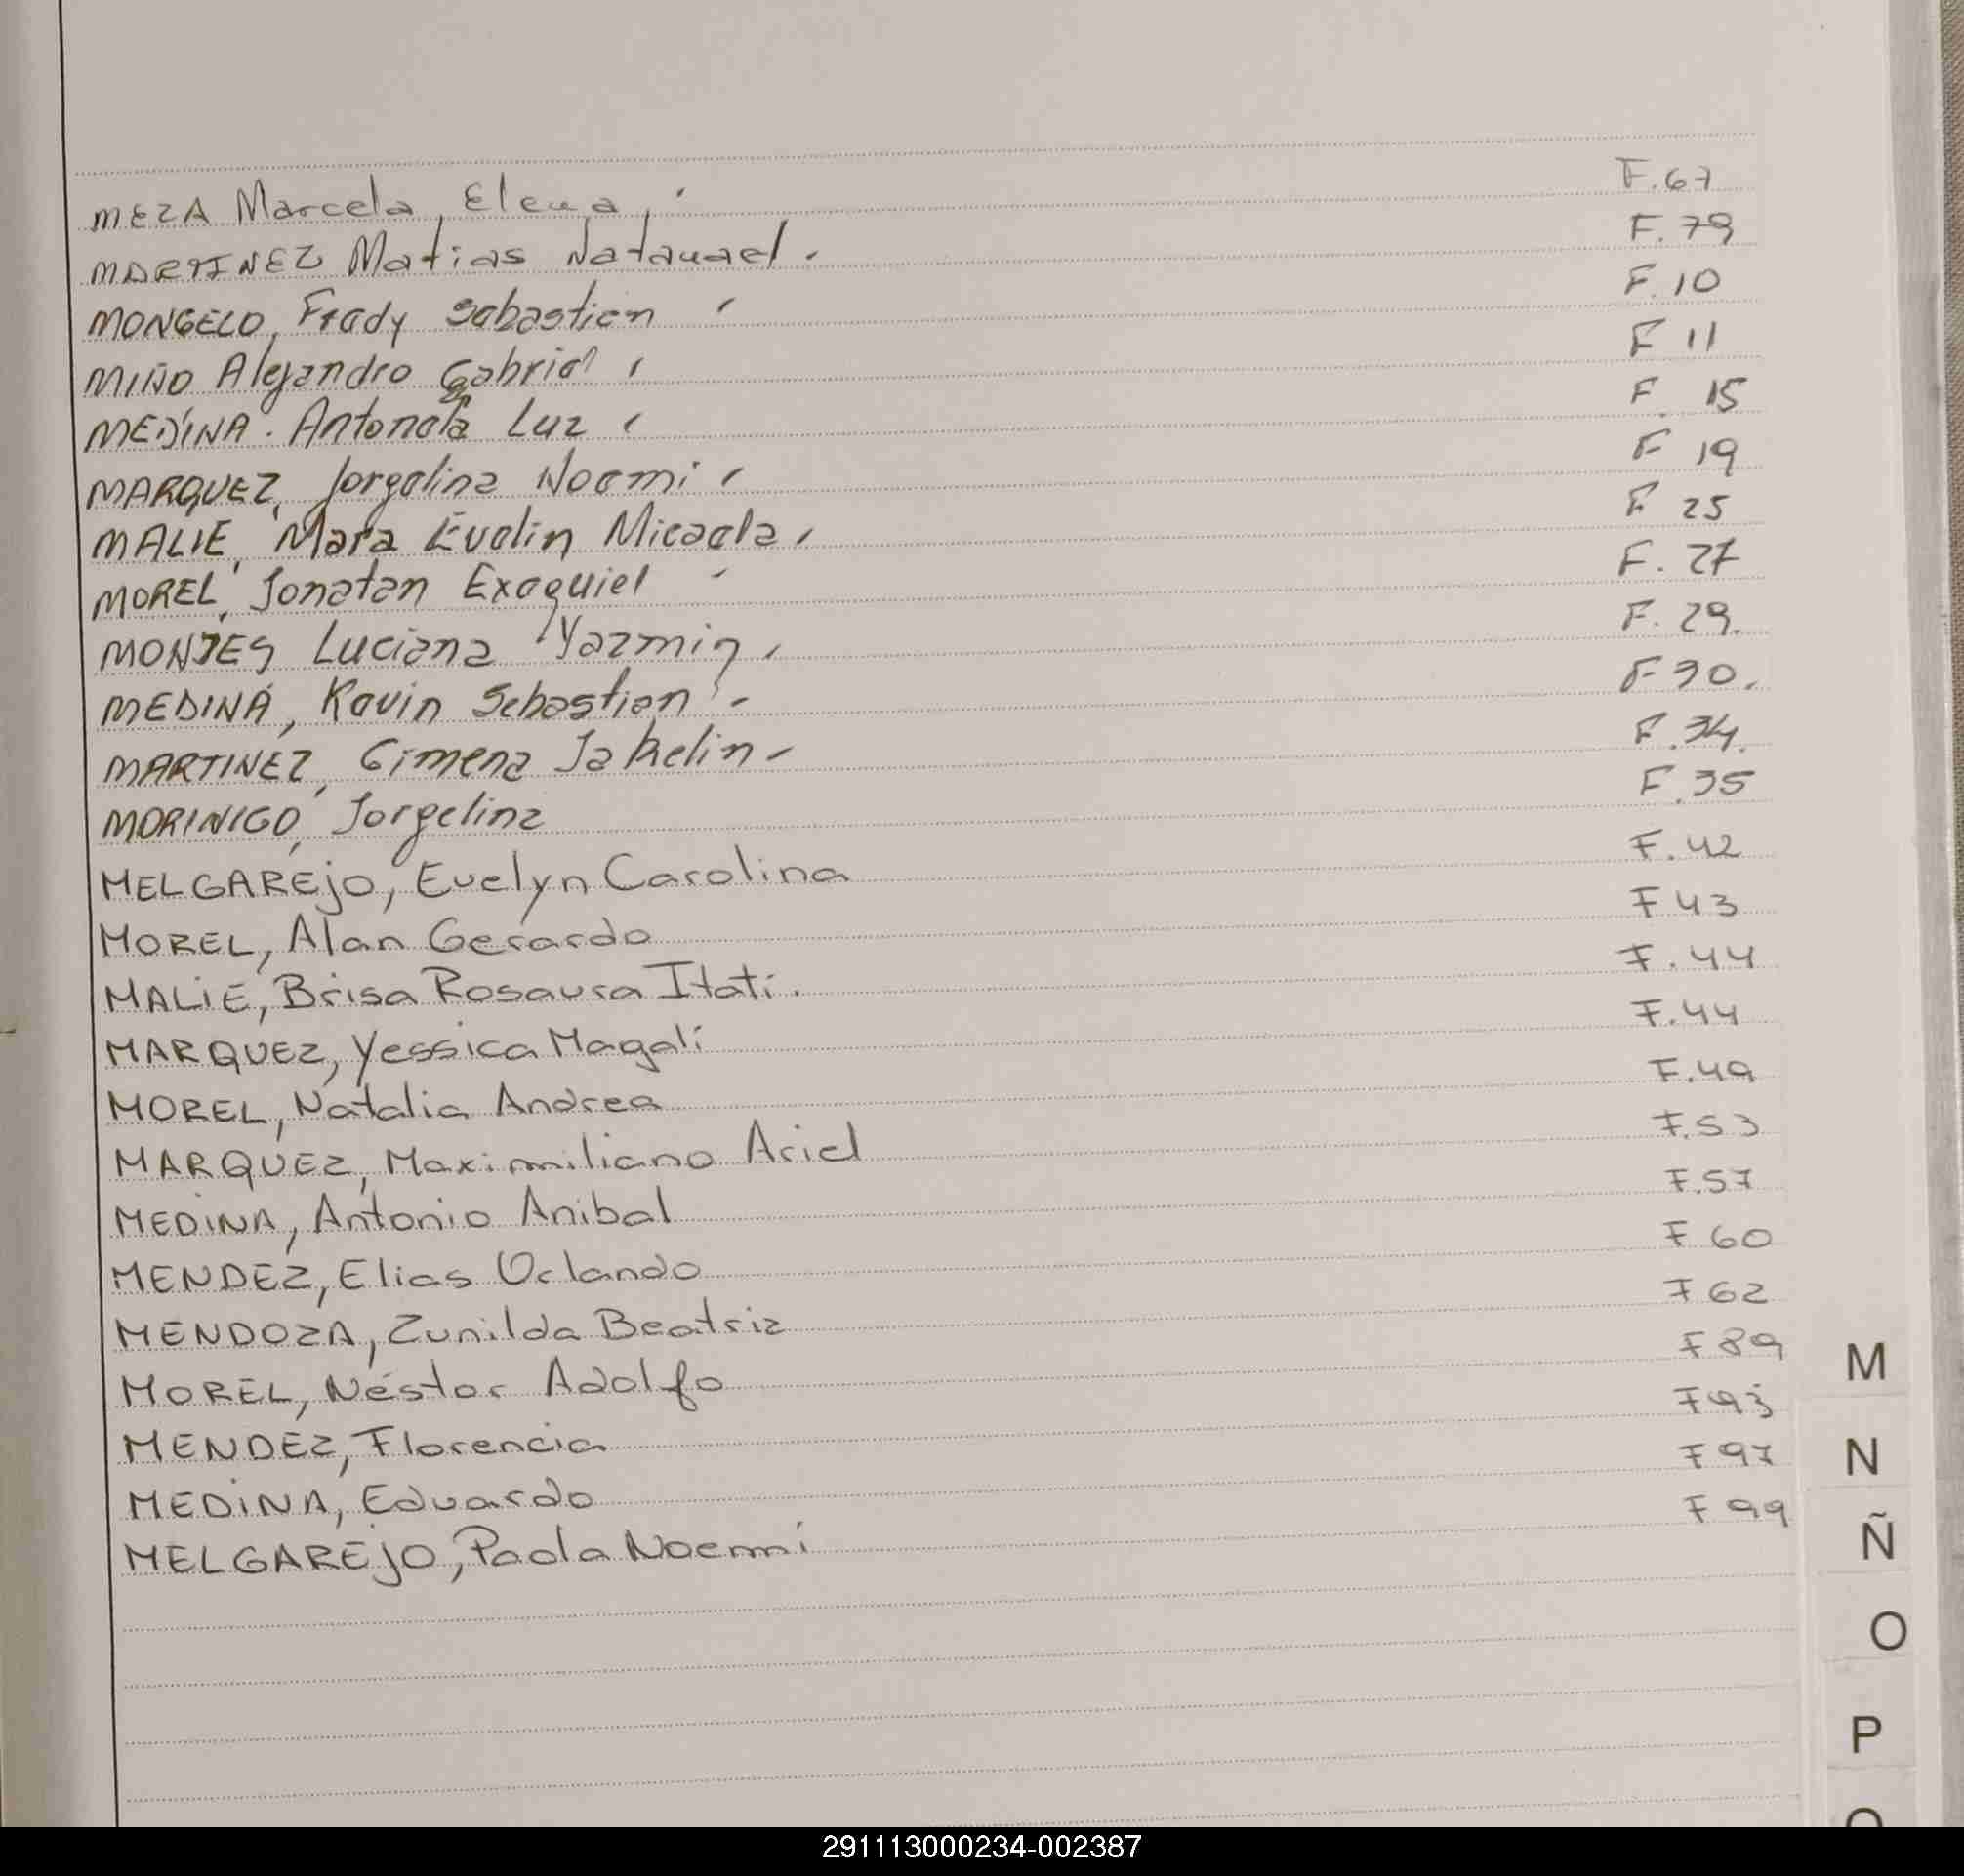 MEZA Marcela, Elena, F.67
MARTINEZ Matias Natanael. F.79
MONGELO, Fredy Sebastian F.10
MIÑO Alejandro Gabriel F 11
MEDINA. Antonela Luz F. 15
MARQUEZ, Jorgelina Noemi F 19
MALIE, Mara Evelin Micaela, F 25
MOREL, Jonatan Exequiel F. 27
MONTES Luciana Yazmin, F. 29.
MEDINA, Kevin Sebastian - F 30.
MARTINEZ, Gimena Jakelin - F. 34.
MORINIGO, Jorgelina F. 35
MELGAREJO, Evelyn Carolina F. 42
MOREL, Alan Gerardo F 43
MALIE, Brisa Rosaura Itati. F. 44
MARQUEZ, Yessica Magali F. 44
MOREL, Natalia Andrea F. 49
MARQUEZ, Maximiliano Ariel F. 53
MEDINA, Antonio Anibal F. 57
MENDEZ, Elias Orlando F 60
MENDOZA, Zunilda Beatriz F 62
MOREL, Néstor Adolfo F 89
MENDEZ, Florencia F 93
MEDINA, Eduardo F 97
MELGAREJO, Paola Noemí F 99
M
N
Ñ
O
P
291113000234-002387